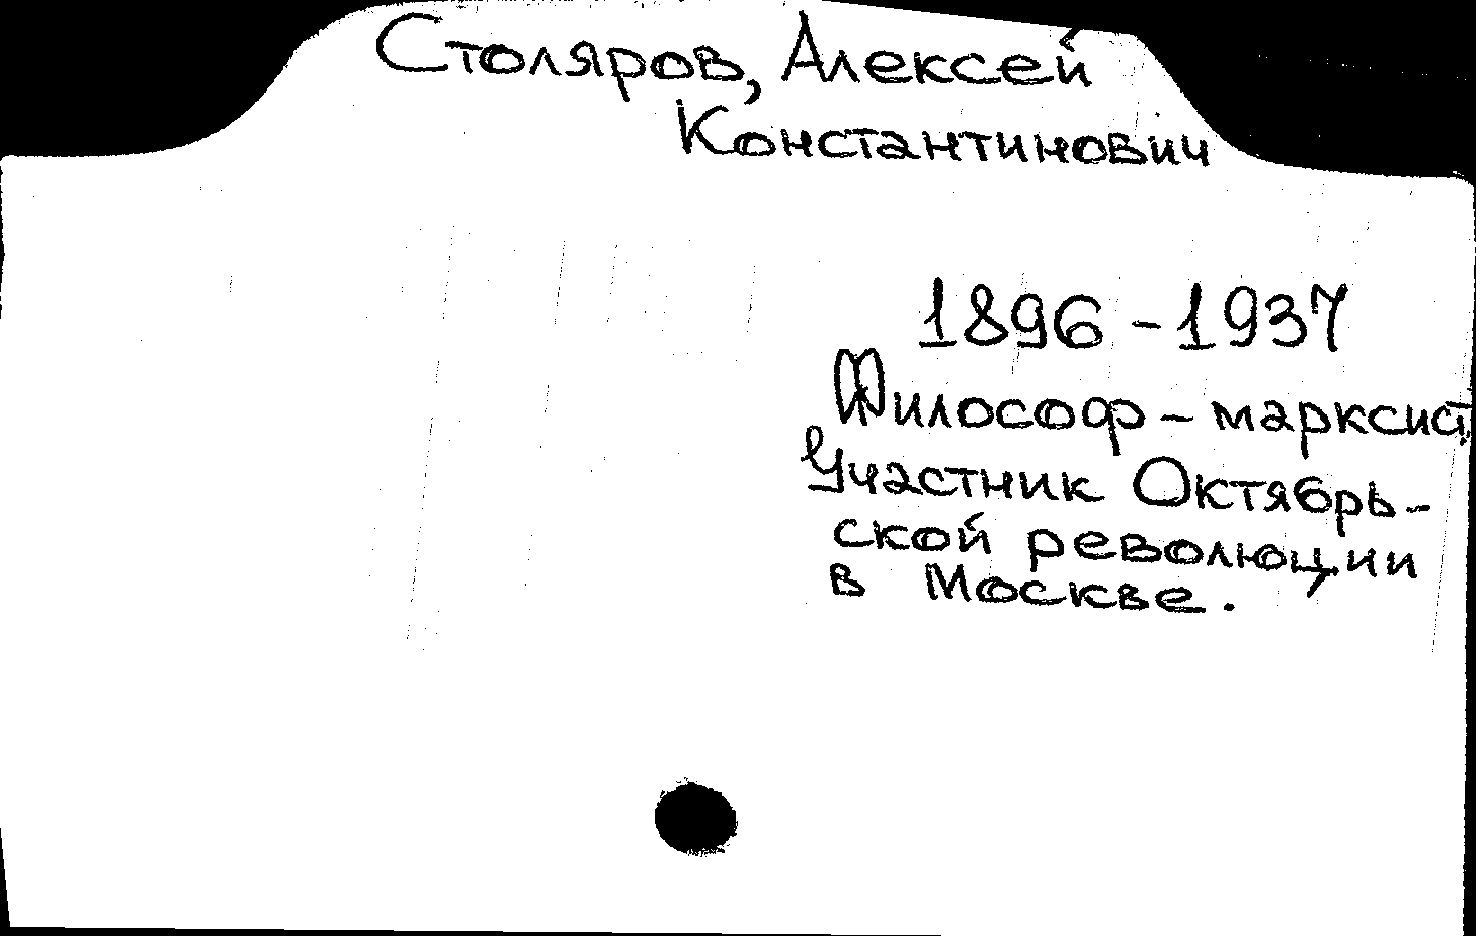 Столяров, Алексей
Константинович
1896 - 1937
Философ - марксист,
Участник Октябрь-
ской революции
в Москве.